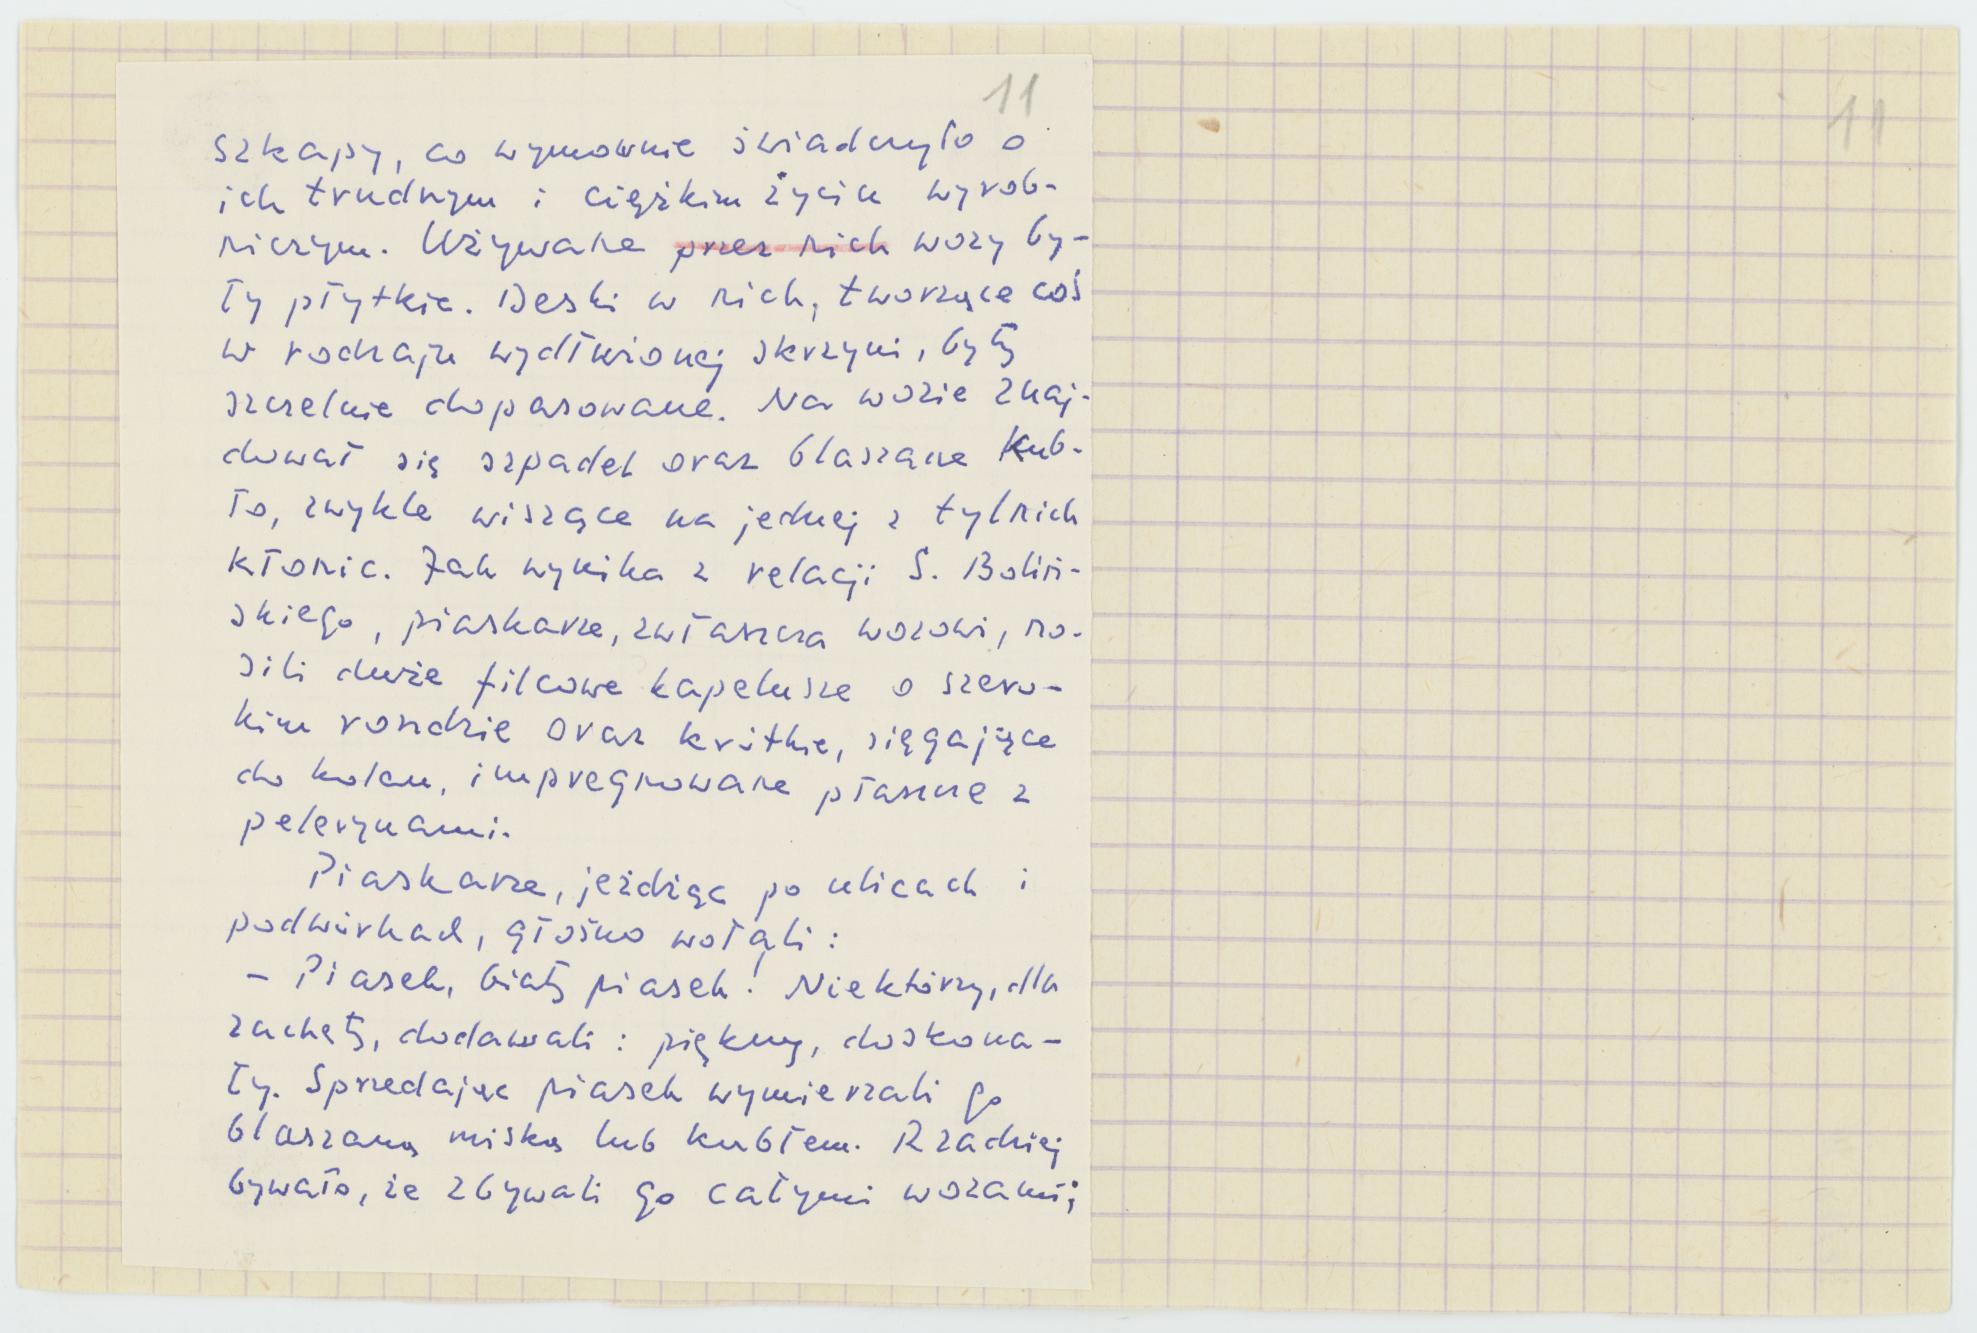 11
szkapy, co wymownie świadczyło o
ich trudnym i ciężkim życiu wyrob-
niczym. Używane przez nich wozy by-
ły płytkie. Deski w nich, tworzące coś
w rodzaju wydłużonej skrzyni, były
szczelnie dopasowane. Na wozie znaj-
dował się szpadel oraz blaszane kub-
ło, zwykle wiszące na jednej z tylnich
kłonic. Jak wynika z relacji S. Boliń-
skiego, piaskarze, zwłaszcza wozowi, no-
sili duże filcowe kapelusze o szero-
kim rondzie oraz krótkie, sięgające
do kolan, impregnowane płaszcze z
pelerynami.
Piaskarze, jeżdżąc po ulicach i
podwórkach, głośno wołali:
- Piasek, biały piasek! Niektórzy, dla
zachęty, dodawali: piękny, doskona-
ły. Sprzedając piasek wymierzali go
blaszaną miską lub kubłem. Rzadziej
bywało, że zbywali go całymi wozami;
11